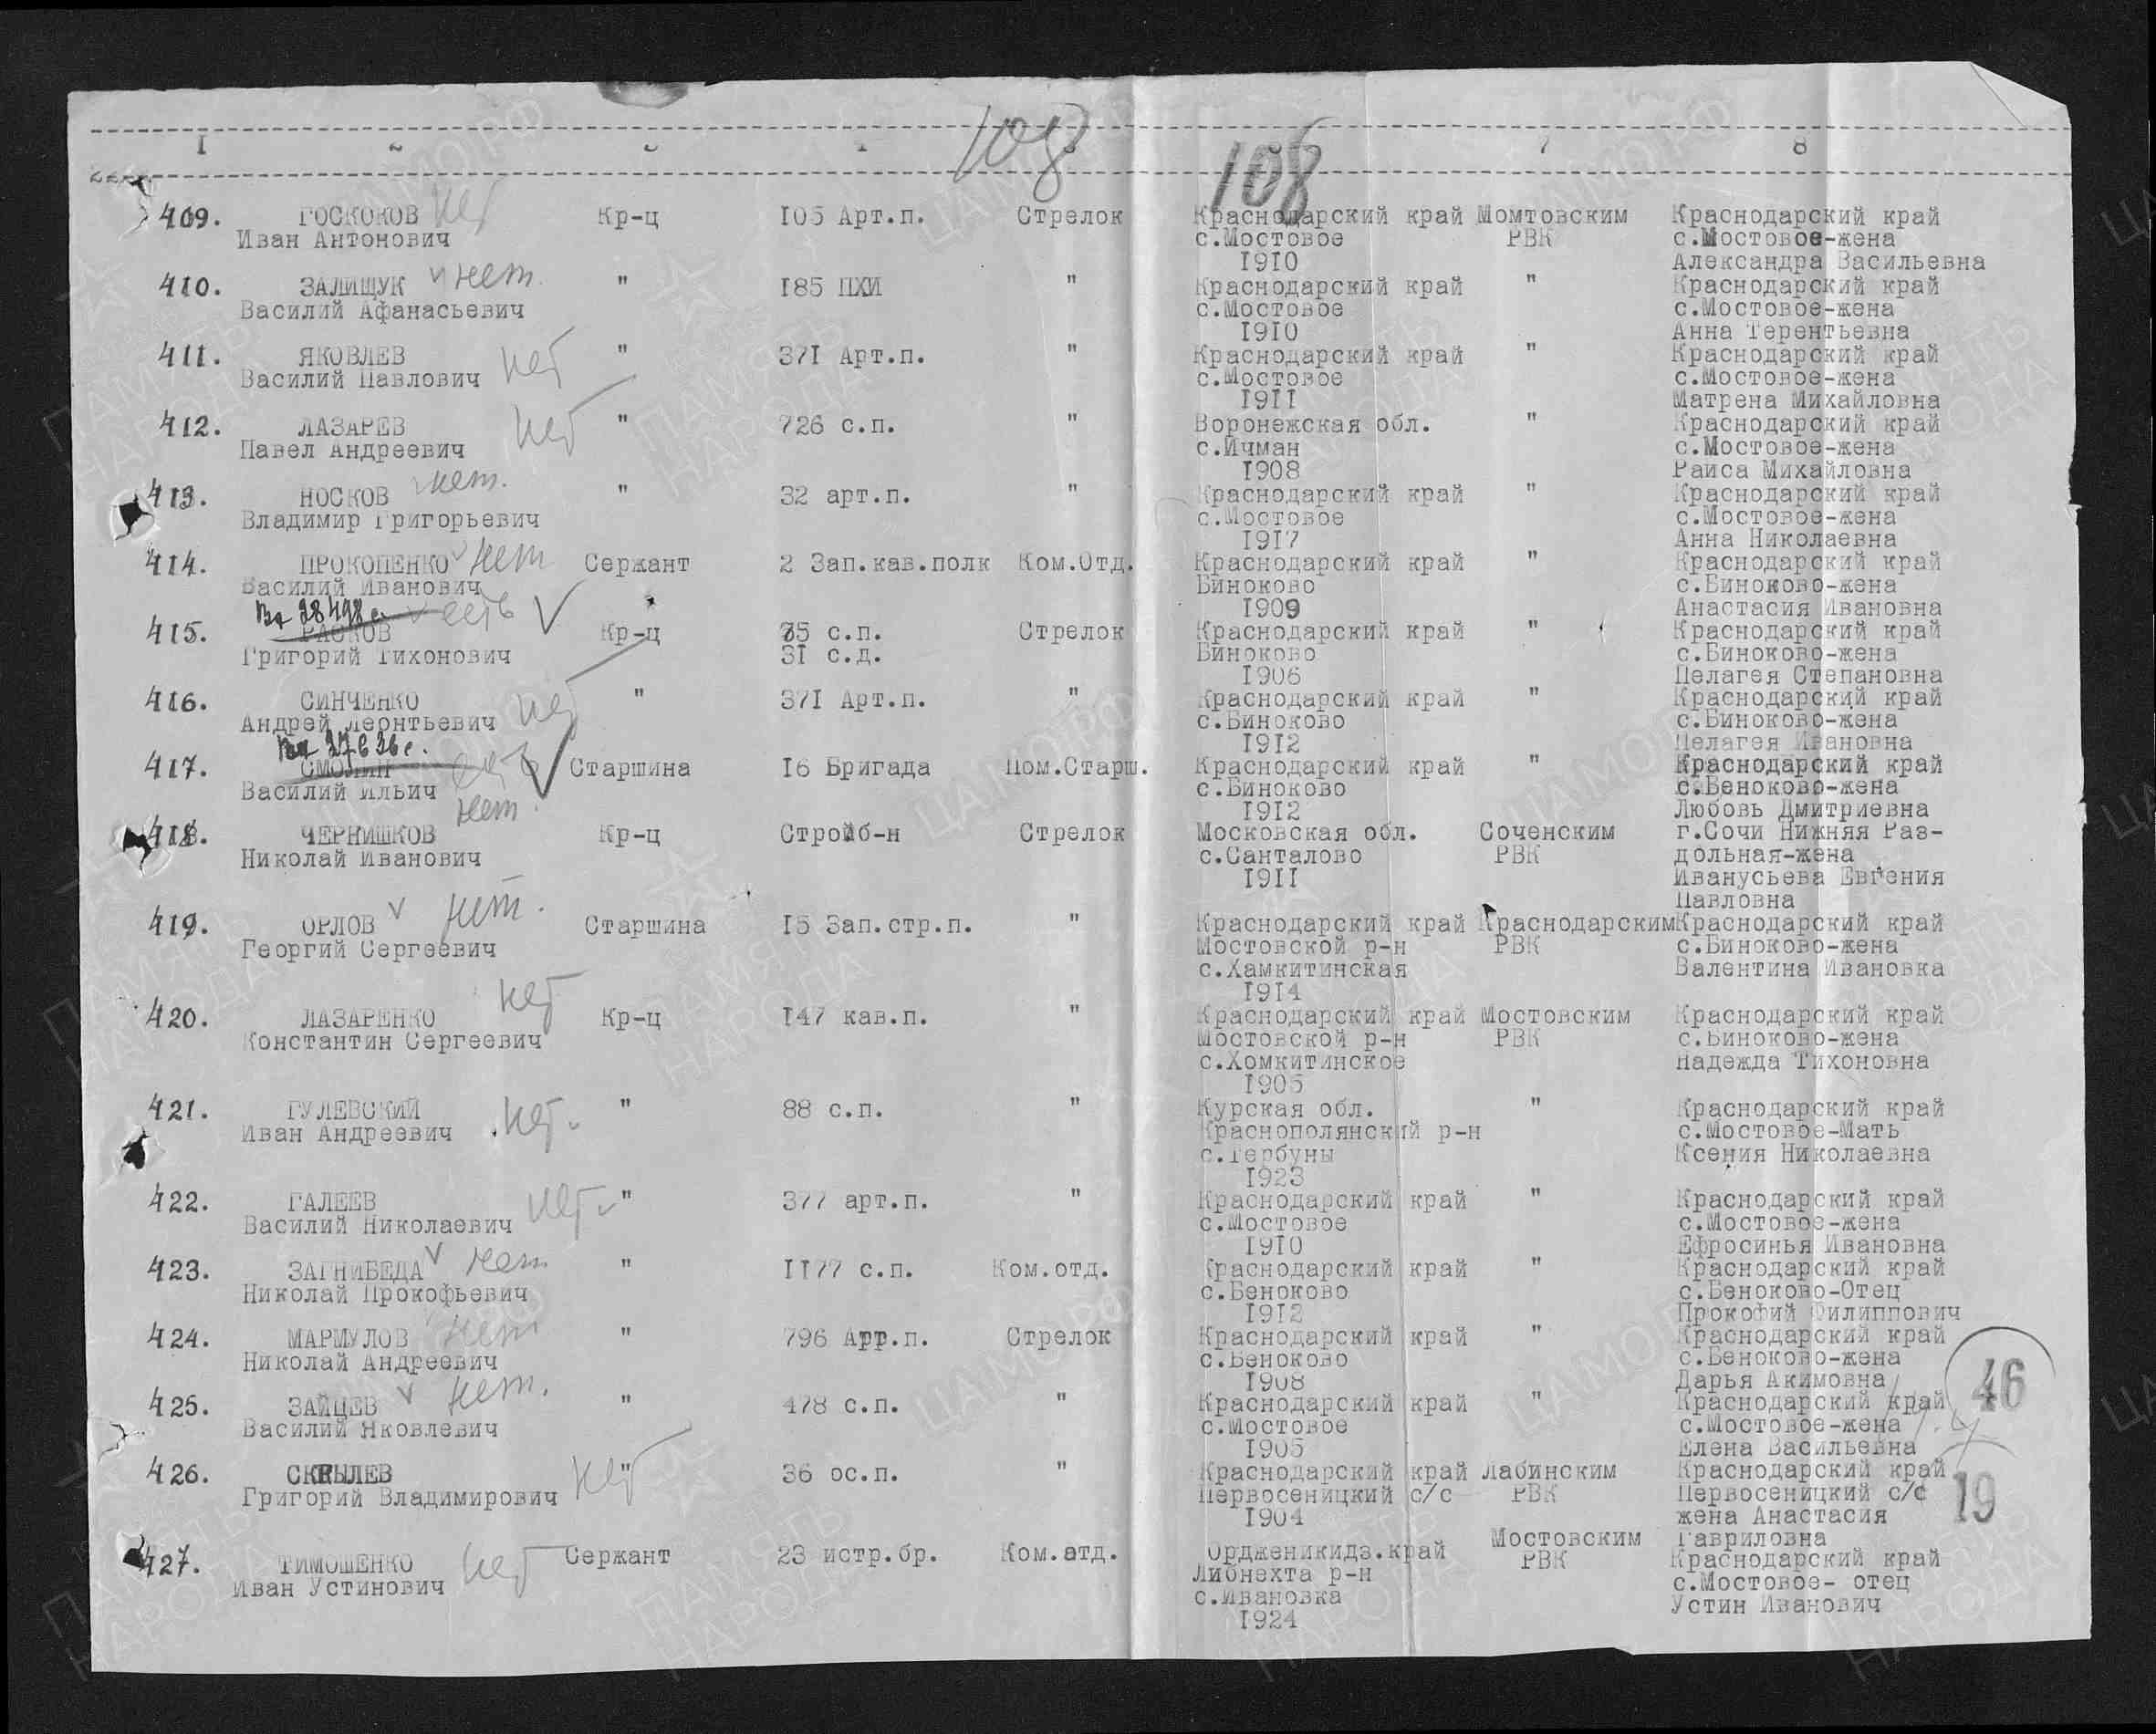 108
108
I 7 8
409. ГОСКОКОВ нет Кр-ц I05 Арт.п. Стрелок Краснодарский край Момтовским Краснодарский край
Иван Антонович с.Мостовое РВК с.Мостовое-жена
I9I0 Александра Васильевна
410. ЗАЛИЩУК нет. " I85 ПХИ " Краснодарский край " Краснодарский край
Василий Афанасьевич с.Мостовое с.Мостовое-жена
I9I0 Анна Терентьевна
411. ЯКОВЛЕВ нет " 37I Арт.п. " Краснодарский край " Краснодарский край
Василий Павлович с.Мостовое с.Мостовое-жена
I9II Матрена Михайловна
412. ЛАЗАРЕВ нет " 726 с.п. " Воронежская обл. " Краснодарский край
Павел Андреевич с.Ичман с.Мостовое-жена
I908 Раиса Михайловна
413. НОСКОВ нет. " 32 арт.п. " Краснодарский край " Краснодарский край
Владимир Григорьевич с.Мостовое с.Мостовое-жена
I9I7 Анна Николаевна
414. ПРОКОПЕНКО нет Сержант 2 Зап.кав.полк Ком.Отд. Краснодарский край " Краснодарский край
Василий Иванович Биноково с.Биноково-жена
I909 Анастасия Ивановна
Вх 28498с. есть
415. РАСКОВ Кр-ц 75 с.п. Стрелок Краснодарский край " Краснодарский край
Григорий Тихонович 3I с.д. Биноково с.Биноково-жена
I906 Пелагея Степановна
416. СИНЧЕНКО нет " 37I Арт.п. " Краснодарский край " Краснодарский край
Андрей Леонтьевич с.Биноково с.Биноково-жена
I9I2 Пелагея Ивановна
Вх 37636с.
417. СМОЛИН есть Старшина I6 Бригада Пом.Старш. Краснодарский край " Краснодарский край
Василий Ильич с.Биноково с.Беноково-жена
нет. I9I2 Любовь Дмитриевна
418. ЧЕРНИШКОВ Кр-ц Стройб-н Стрелок Московская обл. Соченским г.Сочи Нижняя Раз-
Николай Иванович с.Санталово РВК дольная-жена
I9II Иванусьева Евгения
Павловна
419. ОРЛОВ нет. Старшина I5 Зап.стр.п. " Краснодарский край Краснодарским Краснодарский край
Георгий Сергеевич Мостовской р-н РВК с.Биноково-жена
с.Хамкитинская Валентина Ивановка
I9I4
420. ЛАЗАРЕНКО нет Кр-ц I47 кав.п. " Краснодарский край Мостовским Краснодарский край
Константин Сергеевич Мостовской р-н РВК с.Биноково-жена
с.Хомкитинское Надежда Тихоновна
I905
421. ГУЛЕВСКИЙ нет. " 88 с.п. " Курская обл. " Краснодарский край
Иван Андреевич Краснополянский р-н с.Мостовое-Мать
с.Тербуны Ксения Николаевна
I923
422. ГАЛЕЕВ нет " 377 арт.п. " Краснодарский край " Краснодарский край
Василий Николаевич с.Мостовое с.Мостовое-жена
I9I0 Ефросинья Ивановна
423. ЗАГНИБЕДА нет " II77 с.п. Ком.отд. Краснодарский край " Краснодарский край
Николай Прокофьевич с.Беноково с.Беноково-Отец
I9I2 Прокофий Филиппович
424. МАРМУЛОВ нет " 796 Арт.п. Стрелок Краснодарский край " Краснодарский край
Николай Андреевич с.Беноково с.Беноково-жена
I908 Дарья Акимовна
46
425. ЗАЙЦЕВ нет. " 478 с.п. " Краснодарский край " Краснодарский край
Василий Яковлевич с.Мостовое с.Мостовое-жена
I905 Елена Васильевна
426. СКРЫЛЕВ нет " 36 ос.п. " Краснодарский край Лабинским Краснодарский край
Григорий Владимирович Первосеницкий с/с РВК Первосеницкий с/с 19
I904 жена Анастасия
Мостовским Гавриловна
427. ТИМОШЕНКО нет Сержант 23 истр.бр. Ком.отд. Орджeникидз.край РВК Краснодарский край
Иван Устинович Либнехта р-н с.Мостовое- отец
с.Ивановка Устин Иванович
I924